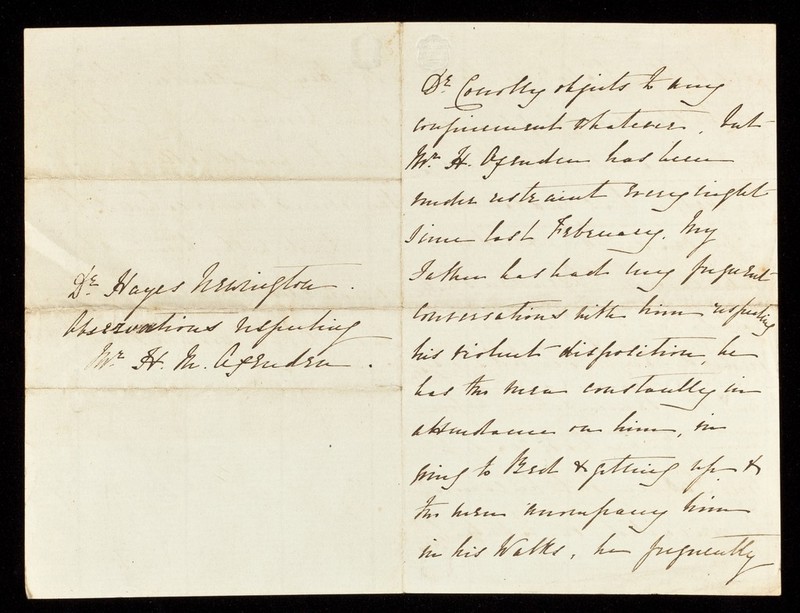 Dr. Hayes Newington.
Observations respecting
Mr. H. M. Oxenden.
Dr. Conolly objects to any
confinement whatever, but
Mr. H. Oxenden has been
under restraint every night
since last February. My
Father has had very frequent
conversations with him respecting
his violent disposition, he
has two men constantly in
attendance on him, in
going to Bed & getting up &
two men accompany him
in his Walks, he frequently